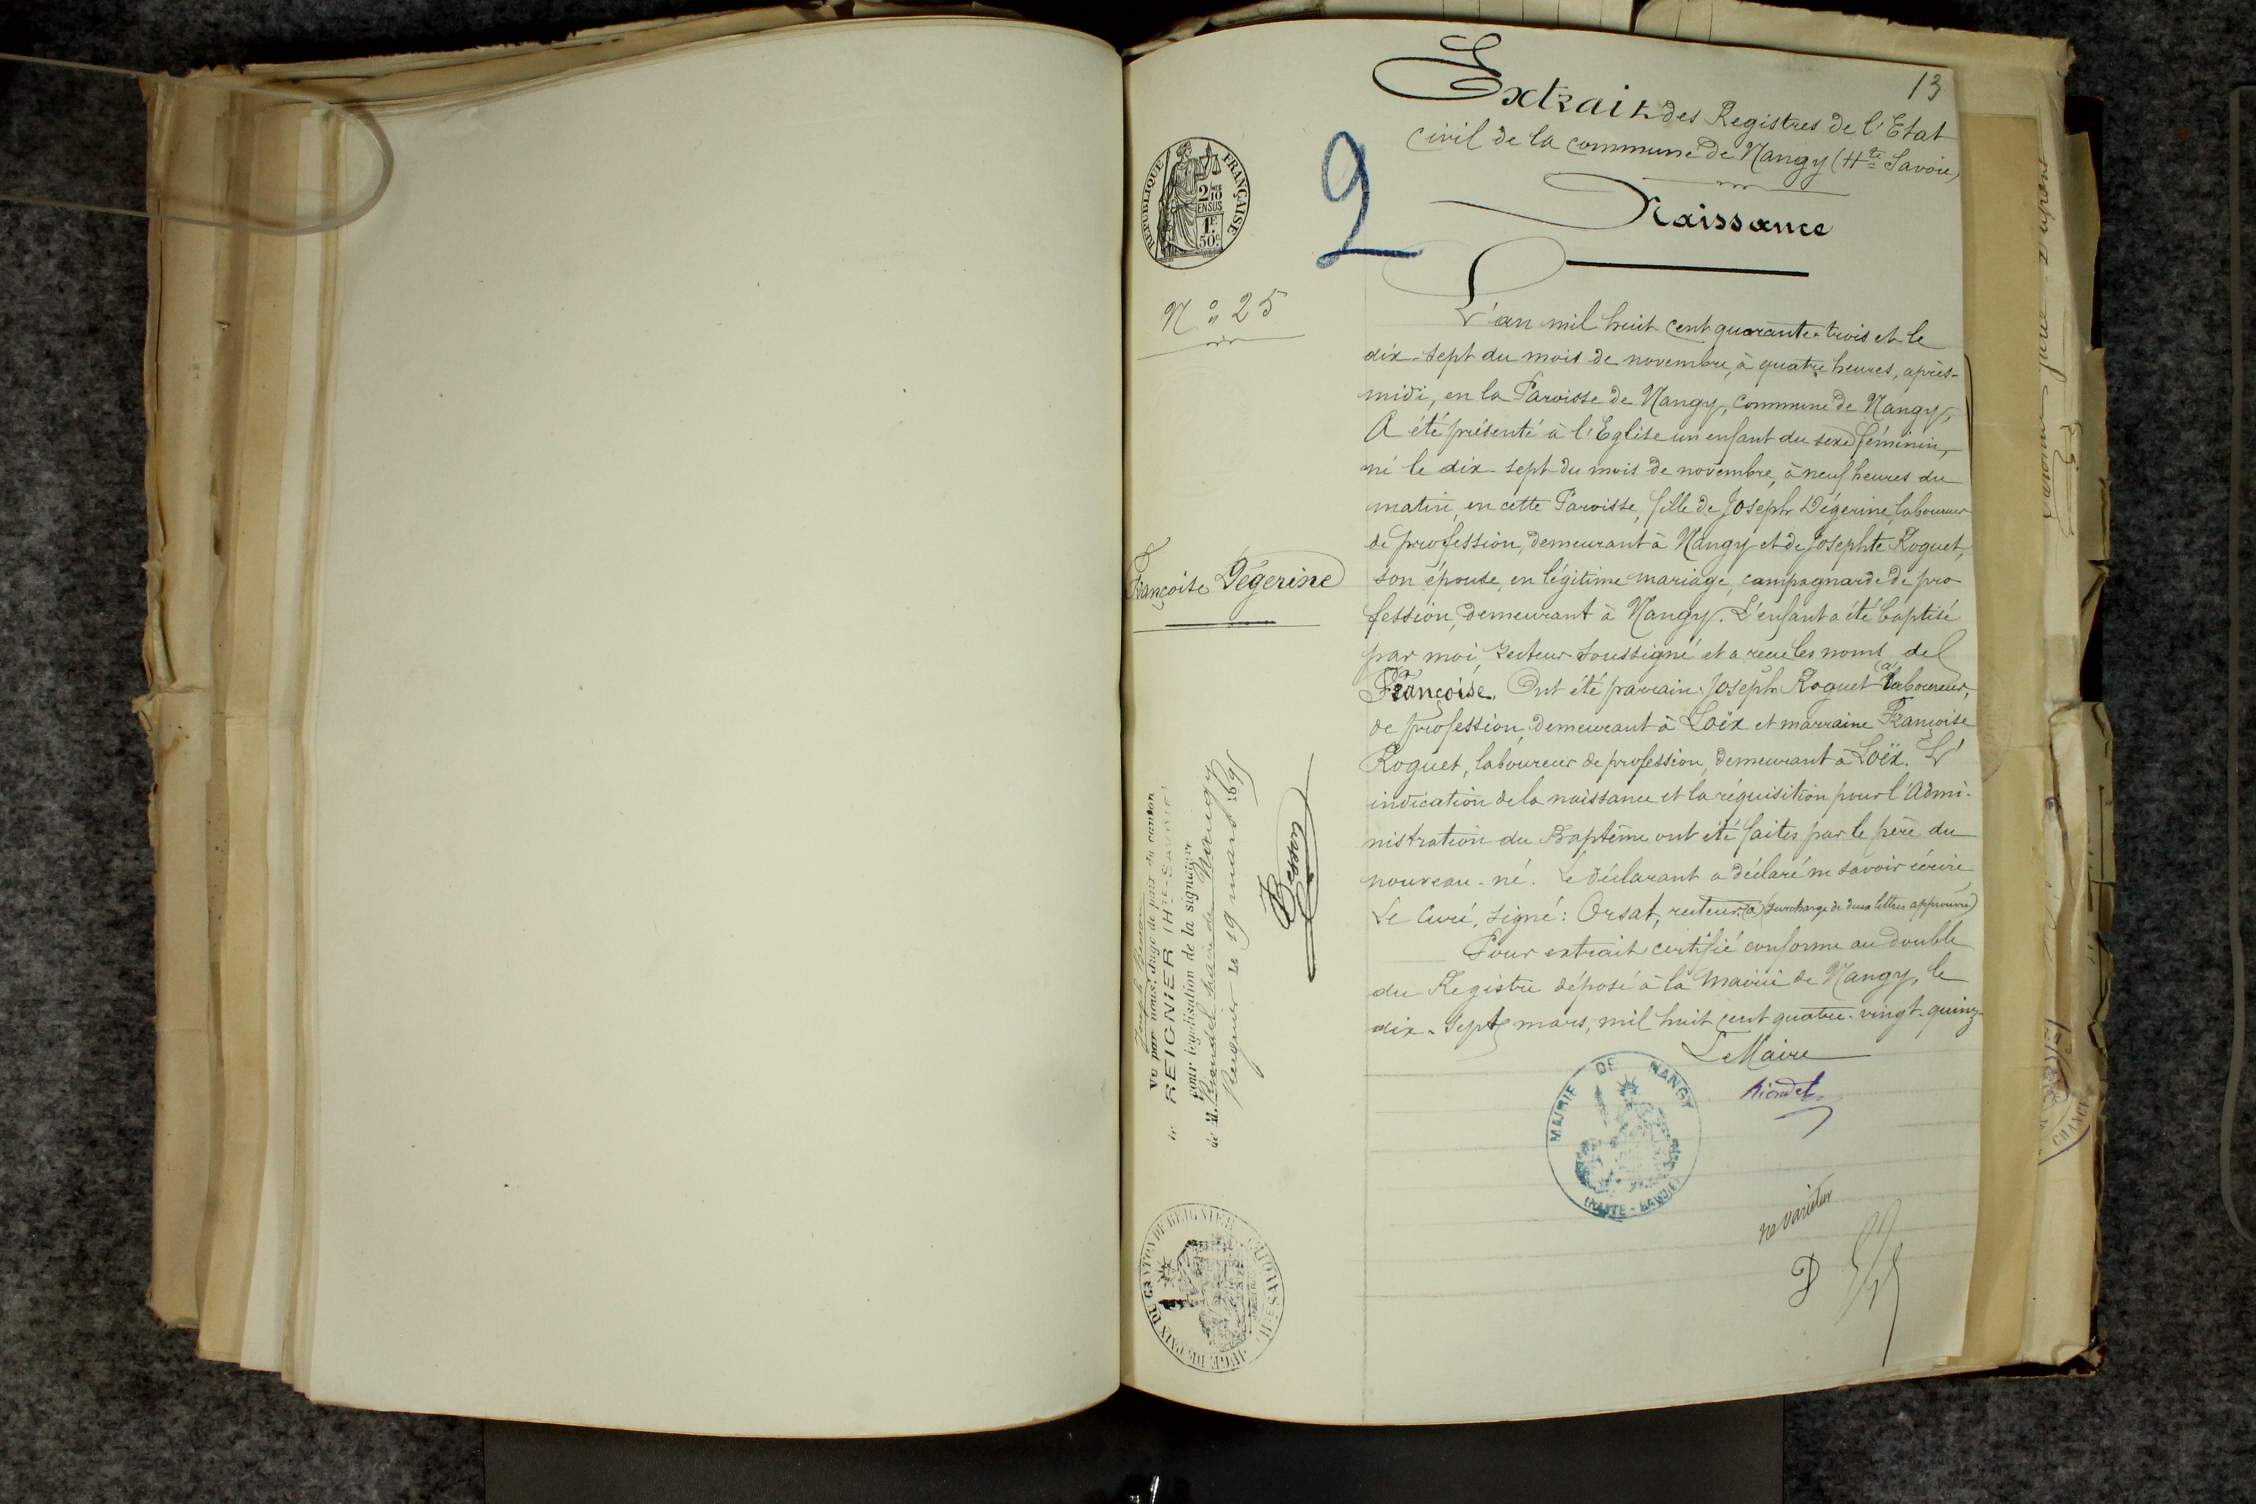 13
Extrait des Registres de l'Etat
civil de la commune de Nangy (Hte Savoie)
Naissance
2
RÉPUBLIQUE FRANÇAISE
2/10
EN SUS
1F
50c
No 25
Françoise Dégerine
L'an mil huit cent quarante-trois et le
dix-sept du mois de novembre, à quatre heures, après-
midi, en la Paroisse de Nangy, commune de Nangy,
A été présenté à l'Eglise un enfant du sexe féminin,
né le dix-sept du mois de novembre, à neuf heures du
matin, en cette Paroisse, fille de Joseph Dégerine, laboureur
de profession, demeurant à Nangy et de Josephte Roguet,
son épouse, en légitime mariage, campagnarde de pro-
fession, demeurant à Nangy. L'enfant a été baptisé
par moi, recteur soussigné et a reçu les noms de
Françoise. Ont été parrain Joseph Roguet (a) laboureur,
de profession, demeurant à Loëx et marraine Françoise
Roguet, laboureur de profession, demeurant à Loëx. L'
indication de la naissance et la réquisition pour l'Admi-
nistration du Baptême ont été faites par le père du
nouveau-né. Le déclarant a déclaré ne savoir écrire,
Le Curé, signé: Orsat, recteur. (a) (surcharge de deux lettres approuvée)
Pour extrait certifié conforme au double
du Registre déposé à la Mairie de Nangy, le
dix-sept mars, mil huit cent quatre-vingt-quinz-
Le Maire
Riondel
MAIRIE DE NANGY
(HAUTE-SAVOIE)
ne varietur
Joseph Besson
Vu par nous, Juge de paix du canton
de REIGNIER (Hte-SAVOIE)
pour légalisation de la signature
de M. Riondel maire de Nangy
Reignier le 19 mars 1895
Besson
JUGE DE PAIX DU CANTON DE REIGNIER